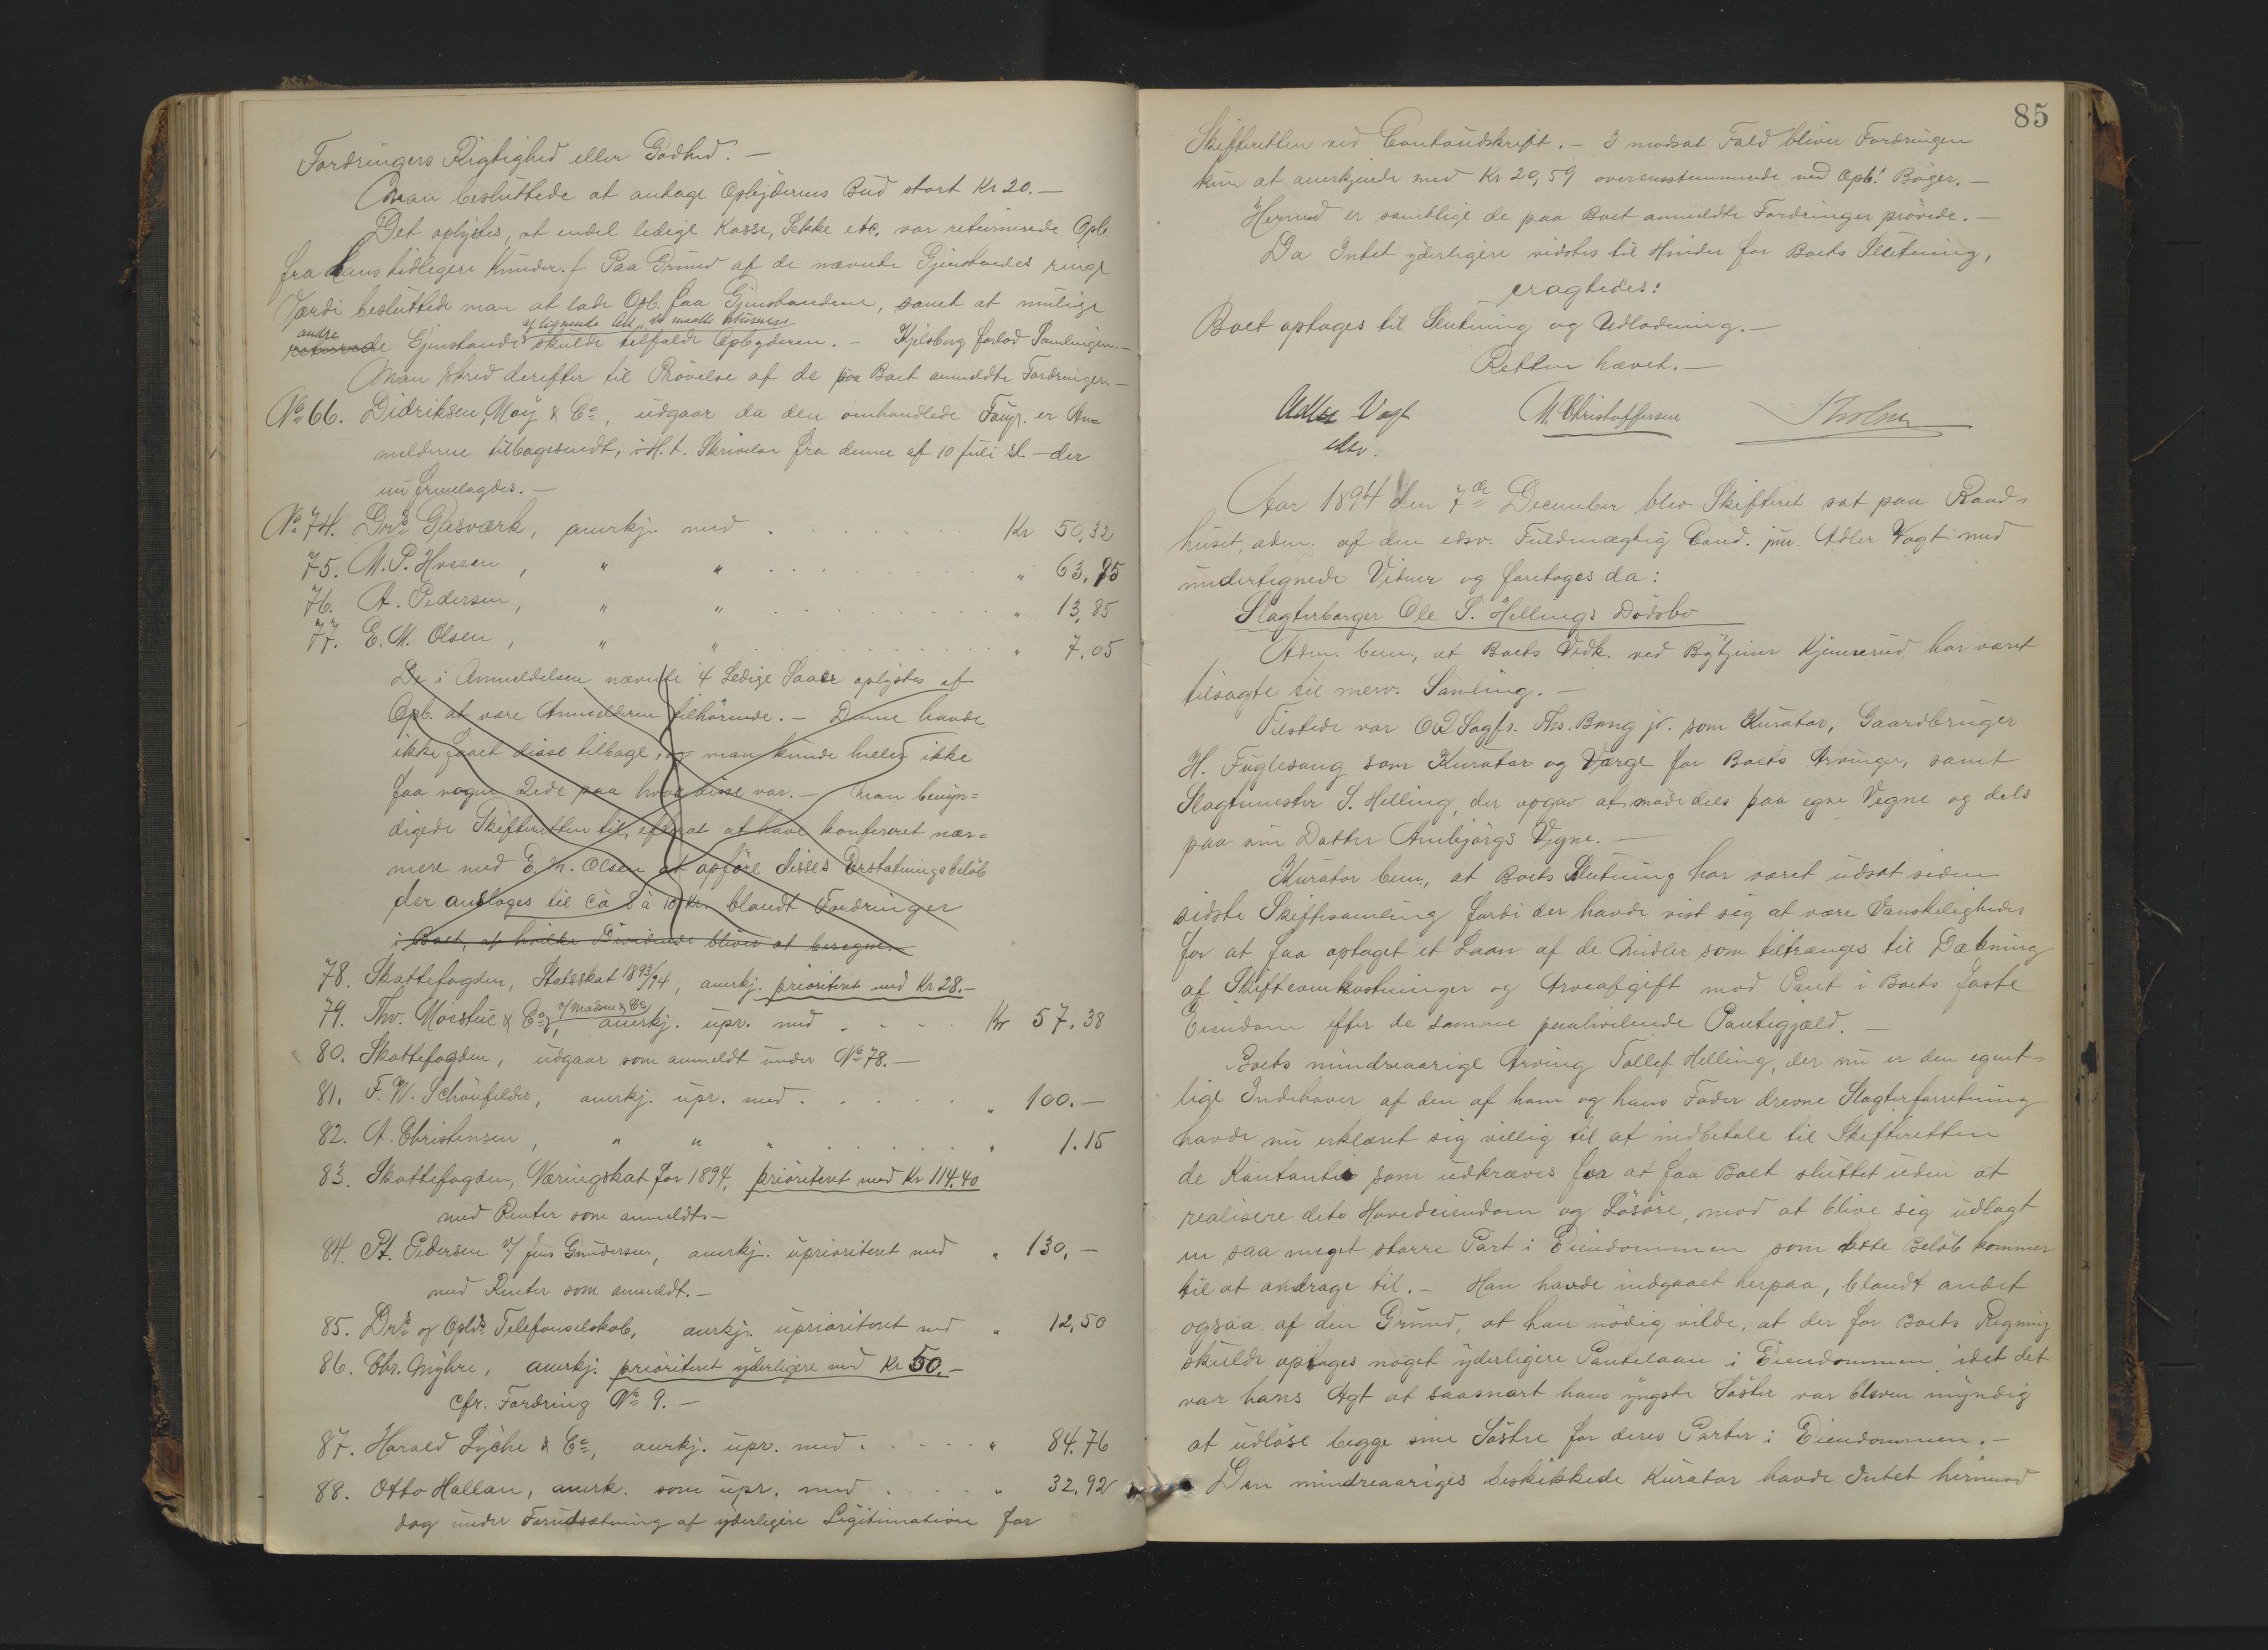 Fordringers Rigtighed eller Godhed. —
Man besluttede at antage Opbyderens Bud stort Kr 20. —
Det oplystes, at endel ledige Kasse, Sekke etc. var returnerede Opb.
fra hans tidligere Kunder. Paa Grund af de nævnte Gjenstandes ringe
Værdi besluttede man at lade Opb. faa Gjenstandene, samt at mulige
andre af lignende Art, der maatte returneres
Gjenstande skulde tilfalde Opbyderen. — Kjelsberg forlod Samlingen. —
Man skred derefter til Prøvelse af de paa Boet anmeldte Fordringer. —
No 66. Didriksen, Møy & Co, udgaar da den omhandlede er An=
melderne tilbagesendt, i H. t. Skrivelse fra denne af 10 Juli d. — der
nu fremlagdes. —
No 74. Drs Gasværk, anerkj. med Kr 50,32
75. M. P. Hvssen, " " " 63,95
76. A. Pedersen, " " " 13,85
77. E. M. Olsen, " " " 7.05
De i Anmeldelsen nævnte 4 Ledige Saaer oplystes af
Opb. at være Anmelderen tilhørende. — Denne havde
ikke faaet disse tilbage, og man kunde heller ikke
faa nogen Rede paa hvor disse var. — Man bemyn=
digede Skifteretten til, efterat at have konfereret nær=
mere med E. M. Olsen at opføre disses Erstatningsbeløb
der anslages til Ca 8 à 10 Kr. blandt Fordringer
i Boet, af hvilke Dividende bliver at beregne.
78. Skattefogden, Statsskat 1893/94, anerkj. prioriteret med Kr 28. —
79. Thv. Moestue & Co, v/ Madsen & Co, anerkj. upr. med Kr 57.38
80. Skattefogden, udgaar som anmeldt under No 78. —
81. F. W. Schönfelder, anerkj. upr. med " 100. —
82. A. Christensen, " " " " 1.15
83. Skattefogden, Næringskat for 1894, prioriteret med Kr 114.40
med Renter som anmeldt. —
84. Pt. Pedersen v/ Jens Gundersen, anerkj. uprioriteret med " 130, —
med Renter som anmeldt. —
85. Drs og Oplds Telefonselskab, anerkj. uprioriteret med " 12,50
86. Chr. Myhre, anerkj. prioriteret yderligere med Kr 50. —
cfr. Fordring No 9. —
87. Harald Lyche & Co, anerkj. upr. med " 84.76
88. Otto Hallan, anerk. som upr. med " 32.92
dog under Forudsætning af yderligere Legitimation for
85
Skifteretten ved Contoudskrift. — I modsat Fald bliver Fordringen
kun at anerkjende med Kr 20,59 overensstemmende med Opb.' Bøger. —
Hermed er samtlige de paa Boet anmeldte Fordringer prøvede. —
Da Intet yderligere vidstes til Hinder for Boets Slutning,
eragtedes:
Boet optages til Slutning og Udlodning. —
Retten hævet. —
Adler Vogt M. Christoffersen Tholm
edsv.
Aar 1894 den 7de December blev Skifteret sat paa Raad=
huset, adm. af den edsv. Fuldmægtig Cand. jur. Adler Vogt med
undertegnede Vidner og foretoges da:
Slagterborger Ole S. Hellings Dødsbo
Adm. bem., at Boets Vedk. ved Bytjener Kjemserud har været
tilsagte til nærv. Samling. —
Tilstede var O.R.Sagfr. Ths. Bang jr. som Kurator, Gaardbruger
H. Fuglesang som Kurator og Værge for Boets Arvinger, samt
Slagtmester S. Helling, der opgav at møde dels paa egne Vegne og dels
paa sin Datter Ambjørgs Vegne. —
Kurator bem., at Boets Slutning har været udsat siden
sidste Skiftesamling fordi der havde vist sig at være Vanskeligheder
for at faa optaget et Laan af de Midler som tiltrænges til Dækning
af Skifteomkostninger og Arveafgift mod Pant i Boets faste
Eiendom efter de samme paahvilende Pantegjæld. —
Boets mindreaarige Arving Tollef Helling, der nu er den egent=
lige Indehaver af den af ham og hans Fader drevne Slagterforretning
havde nu erklæret sig villig til at indbetale til Skifteretten
de Kontanter som udkræves for at faa Boet sluttet uden at
realisere dets Hovedeiendom og Løsøre, mod at blive sig udlagt
en saa meget større Part i Eiendommen som dette Beløb kommer
til at andrage til. — Han havde indgaaet herpaa, blandt andet
ogsaa af den Grund, at han nødig vilde, at der for Boets Regning
skulde optages noget yderligere Pantelaan i Eiendommen, idet det
var hans Agt at saasnart hans yngste Søster var bleven myndig
at udløse begge sine Søstre for deres Parter i Eiendommen. —
Den mindreaariges beskikkede Kurator havde Intet herimod